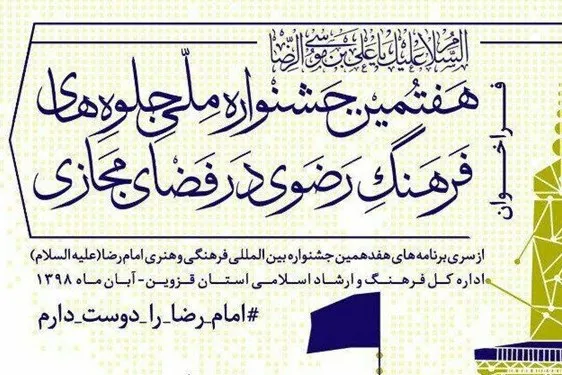 السلام علیک یا علی بن موسی الرضا
فراخوان
هفتمین جشنواره ملّی جلوه‌های
فرهنگِ رضوی در فضای مجازی
از سری برنامه‌های هفدهمین جشنواره بین المللی فرهنگی و هنری امام رضا(علیه السلام)
اداره کل فرهنگ و ارشاد اسلامی استان قزوین - آبان ماه ۱۳۹۸
#امام_رضا_را_دوست_دارم